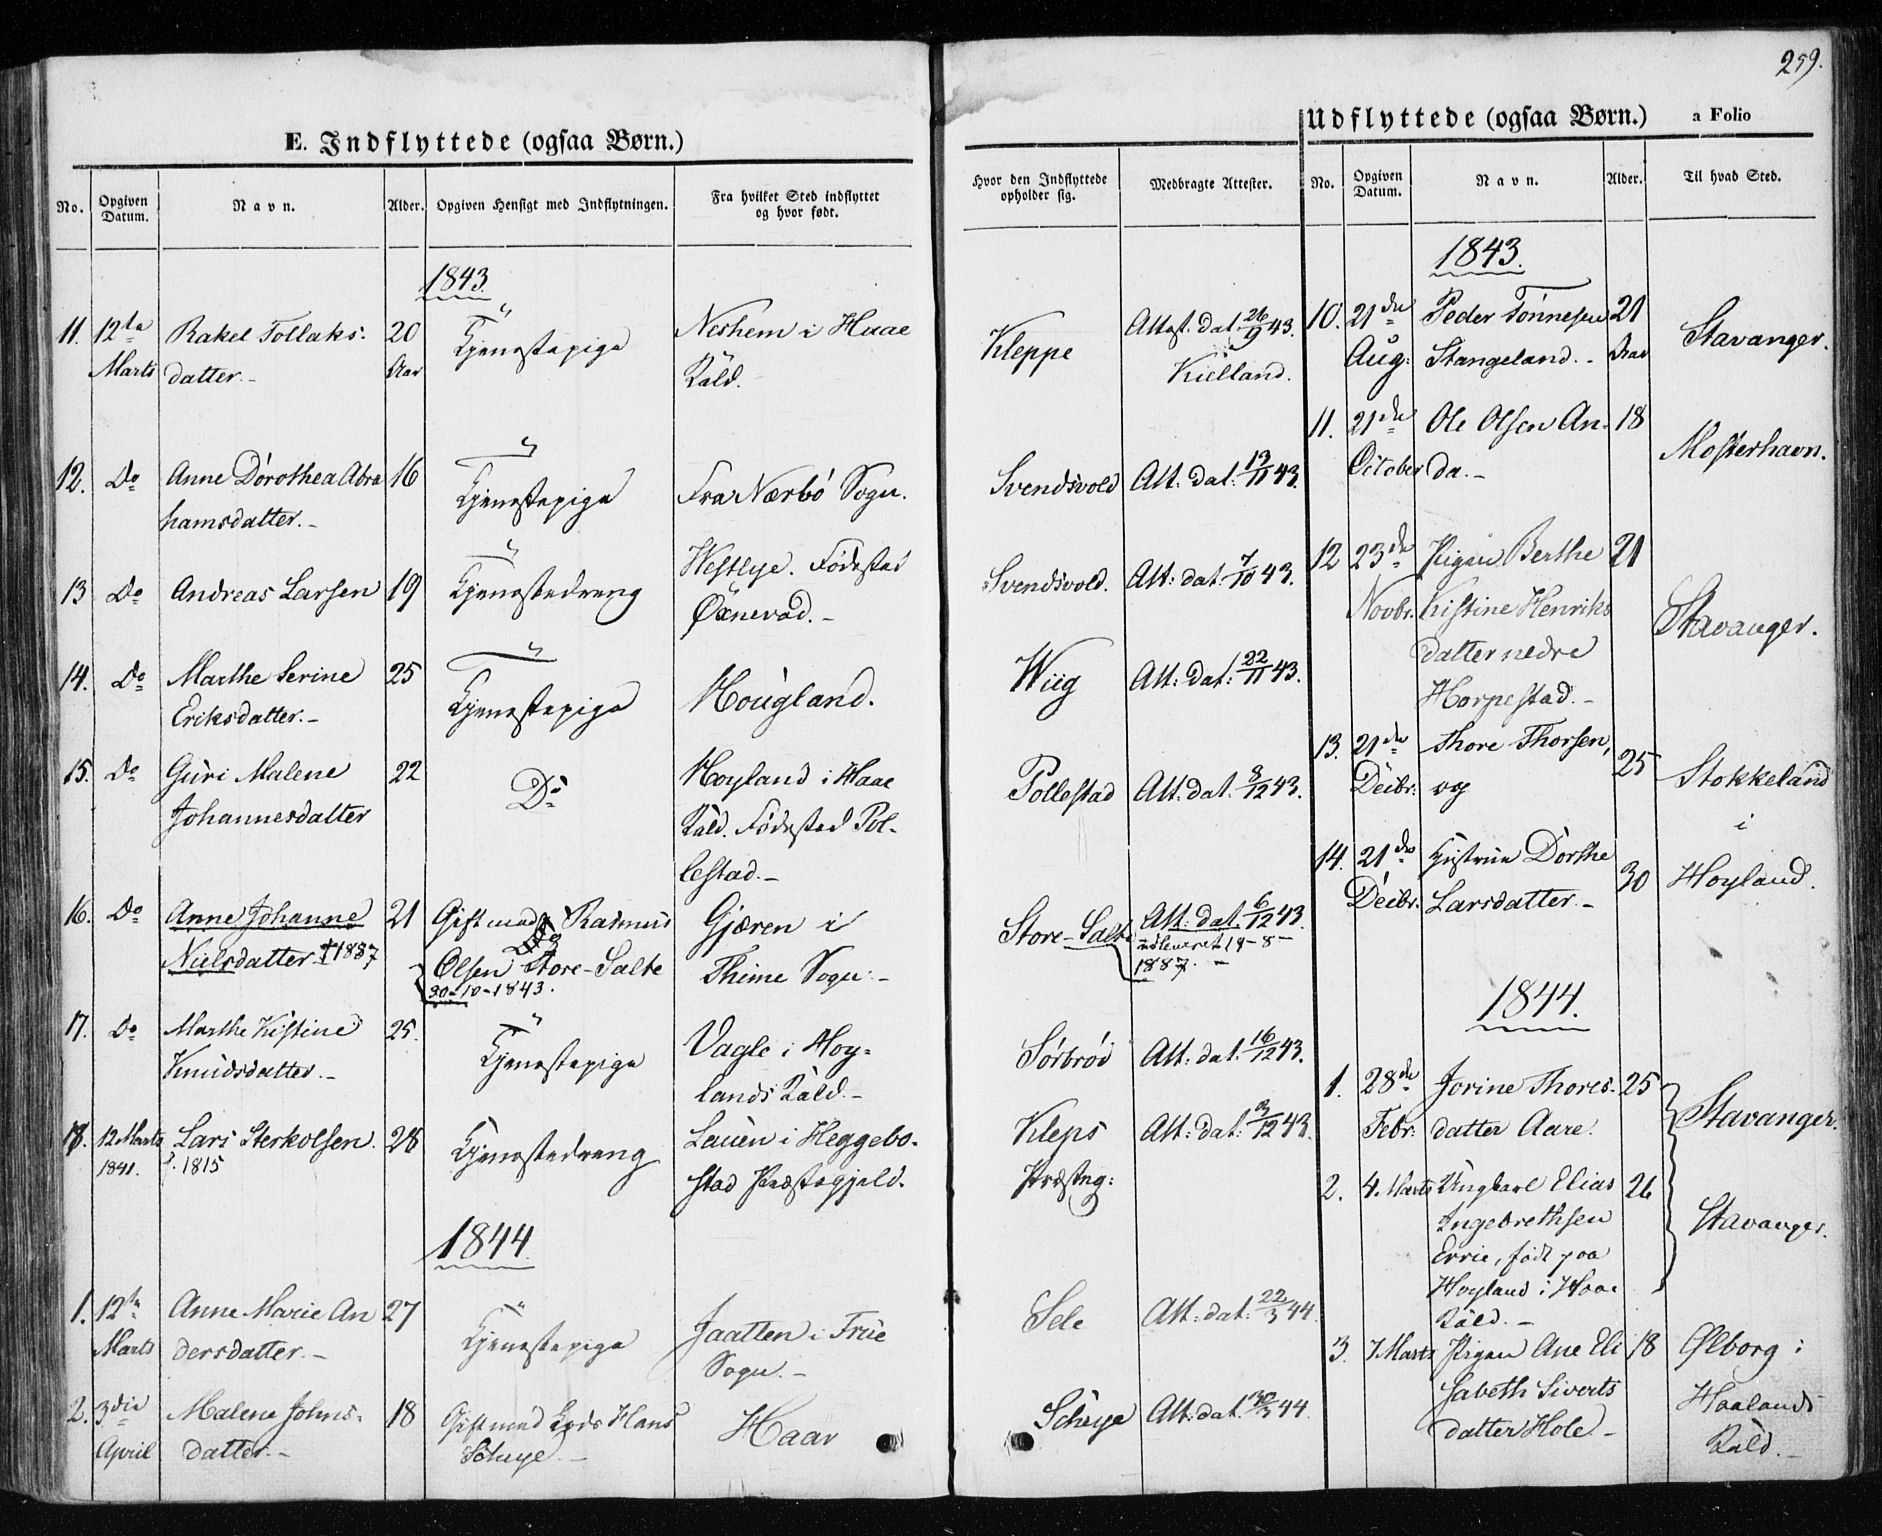 259.
E. Indflyttede (ogsaa Børn.)
No.
Opgiven Datum.
Navn.
Alder.
Opgiven Hensigt med Indflytningen.
Fra hvilket Sted indflyttet og hvor født.
Hvor den Indflyttede opholder sig.
Medbragte Attester.
1843.
11. 12te Rakel Tollaks: 20 Tjenestepige Neshem i Haae Kleppe Attest. dat. 26/9 43.
Marts datter.- Aar Kald. Kielland.
12. Do Anne Dorothea Abra 16 Tjenestepige Fra Nærbö Sogn. Svendsvold Att: dat: 13/11 43.
hamsdatter.-
13 Do Andreas Larsen 19 Tjenestedreng Westlye. Födested Svendsvold. Att: dat: 7/10 43.
Öxnevad.-
14. Do Marthe Serine 25 Tjenestepige Hougland. Wiig Att: dat: 22/11 43.
Eriksdatter.-
15. Do Guri Malene 22 Do Hoyland i Haae Pollestad Att: dat. 8/12 43.
Johannesdatter Kald. Födested Pol-
lestad.-
16. Do Anne Johanne 21 Gift med Rasmus Gjæren i Store-Salte Att: dat. 6/12 43.
Nielsdatter †1887 Olsen Store-Salte Thime Sogn.- udleveret 18-8-
30-10-1843. 1887.-
17. Do Marthe Kistine 25. Tjenestepige Vagle i Hoy- Sörbröi Att: dat. 16/12 43.
Knudsdatter.- lands Kald.-
18. 12 Marts Lars Sterkolsen. 28 Tjenestedreng Lauen i Heggebo- Kleps Att: dat: 3/12 43.
1841. f. 1815 stad Præstegjeld. Præsteg:
1844.
1. 12te Anne Marie An 27 Tjenestepige Jaatten i Frue Sele Att: dat: 22/3 44.
Marts dersdatter.- Sogn.-
2. 3die Malene Johns- 18 Gift med Hans Haar Schuye Att: dat. 44.
April datter.- Schuye.-
Udflyttede (ogsaa Børn.) a Folio
No.
Opgiven Datum.
Navn.
Alder.
Til hvad Sted.
1843.
10. 21de Peder Tönnesen 21 Stavanger.
Aug: Stangeland.- Aar
11. 21de Ole Olsen An- 18 Mosterhavn.
October da.-
12 23de Pigen Berthe 21
Novbr. Kistine Henriks Stavanger.
datter nedre
Horpestad.-
13. 21de Thore Thorsen, 25 Stokkeland
Decbr: og i
14. 21de Hustrue Dorthe 30 Hoyland.
Decbr. Larsdatter.-
1844.
1. 28de Jorine Thores- 25 Stavanger.
Febr: datter Aare.
2. 4. Marts Ungkarl Elias 26 Stavanger.
Ingebrethsen
Errie, födt paa
Hoyland i Haae
Kald.-
3. 7 Marts Pigen Ane Eli 18 Ølborg i
sabeth Siverts Haalands
datter Hole- Kald.-